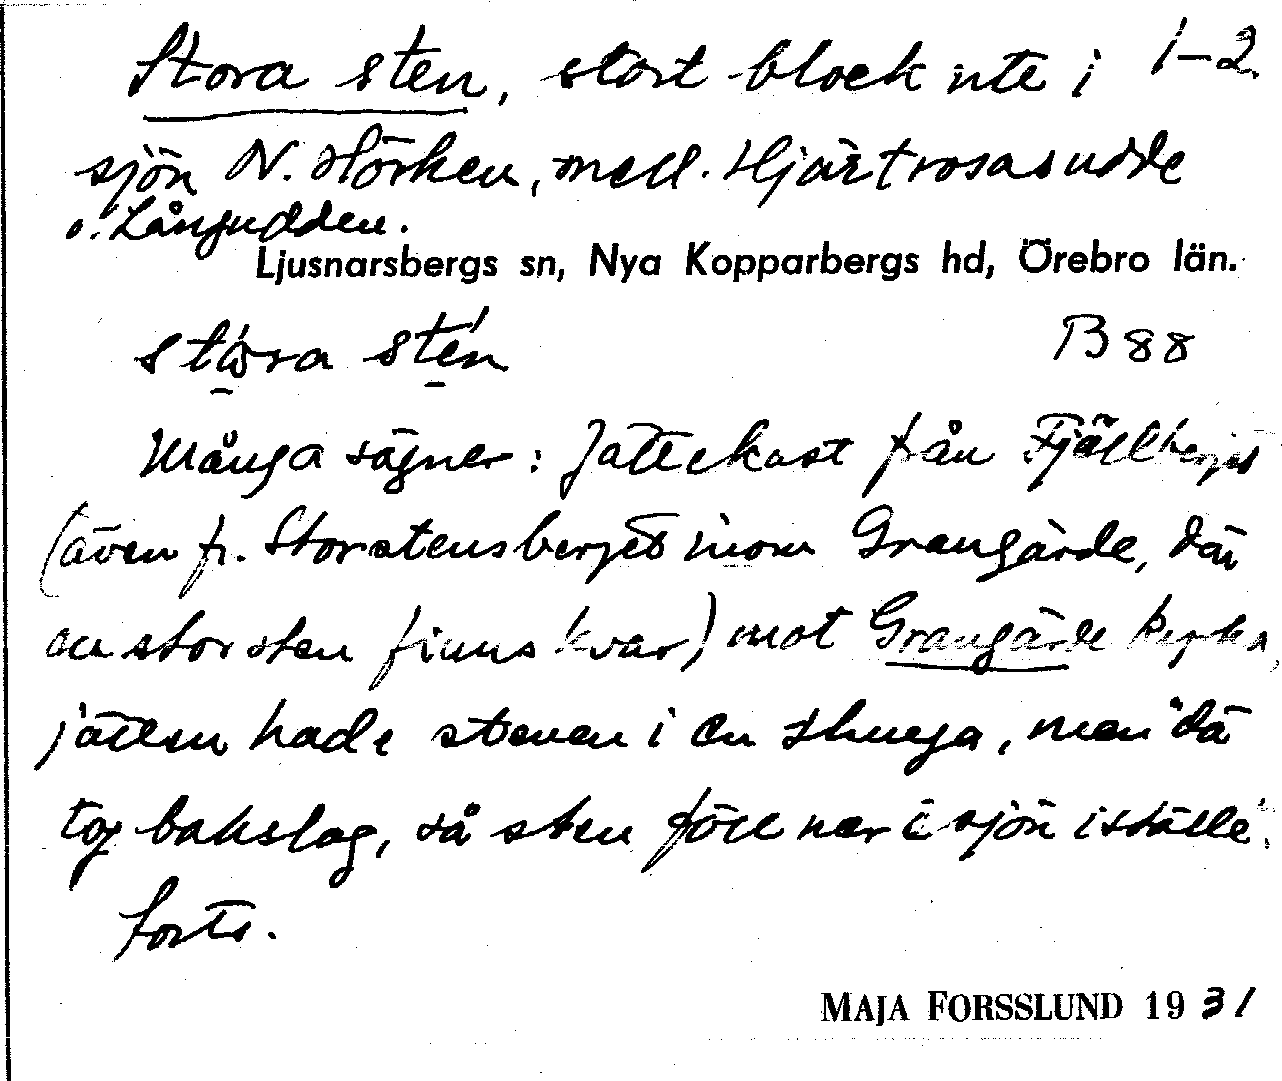 Stora sten, stort block ute i 1-2
sjön N. Hörken, mell. Hjärtrosasudde
o. Långudden.
Ljusnarsbergs sn, Nya Kopparbergs hd, Örebro län.
stóra stén B 88
Många sägner: Jättekast från Fjällberget
(även fr. Storstensberget inom Grangärde, där
en stor sten finns kvar) mot Grangärde kyrka,
jätten hade stenen i en slunga, men "dä
tog bakslag, så sten föll ner i sjön iställe".
forts.
MAJA FORSSLUND 1931